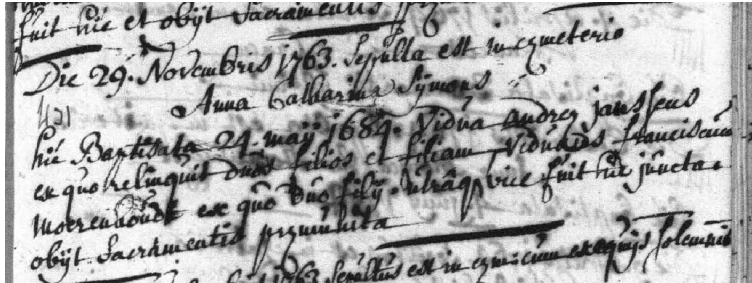 fuit hic et obijt Sacramentis
Die 29. Novembris 1763. Sepulta est in cymeterio
Anna Catharina Sijmons
421
hic Baptisata 24. maij 1684. Vidua Andreae Janssens
ex quo relinquit duos filios et filiam Viduatus franciscum
ex quo duo filij. utraque vice fuit hic juncta
obijt Sacramentis praemunita
1763 Sepultus est in cum exequijs solemnis